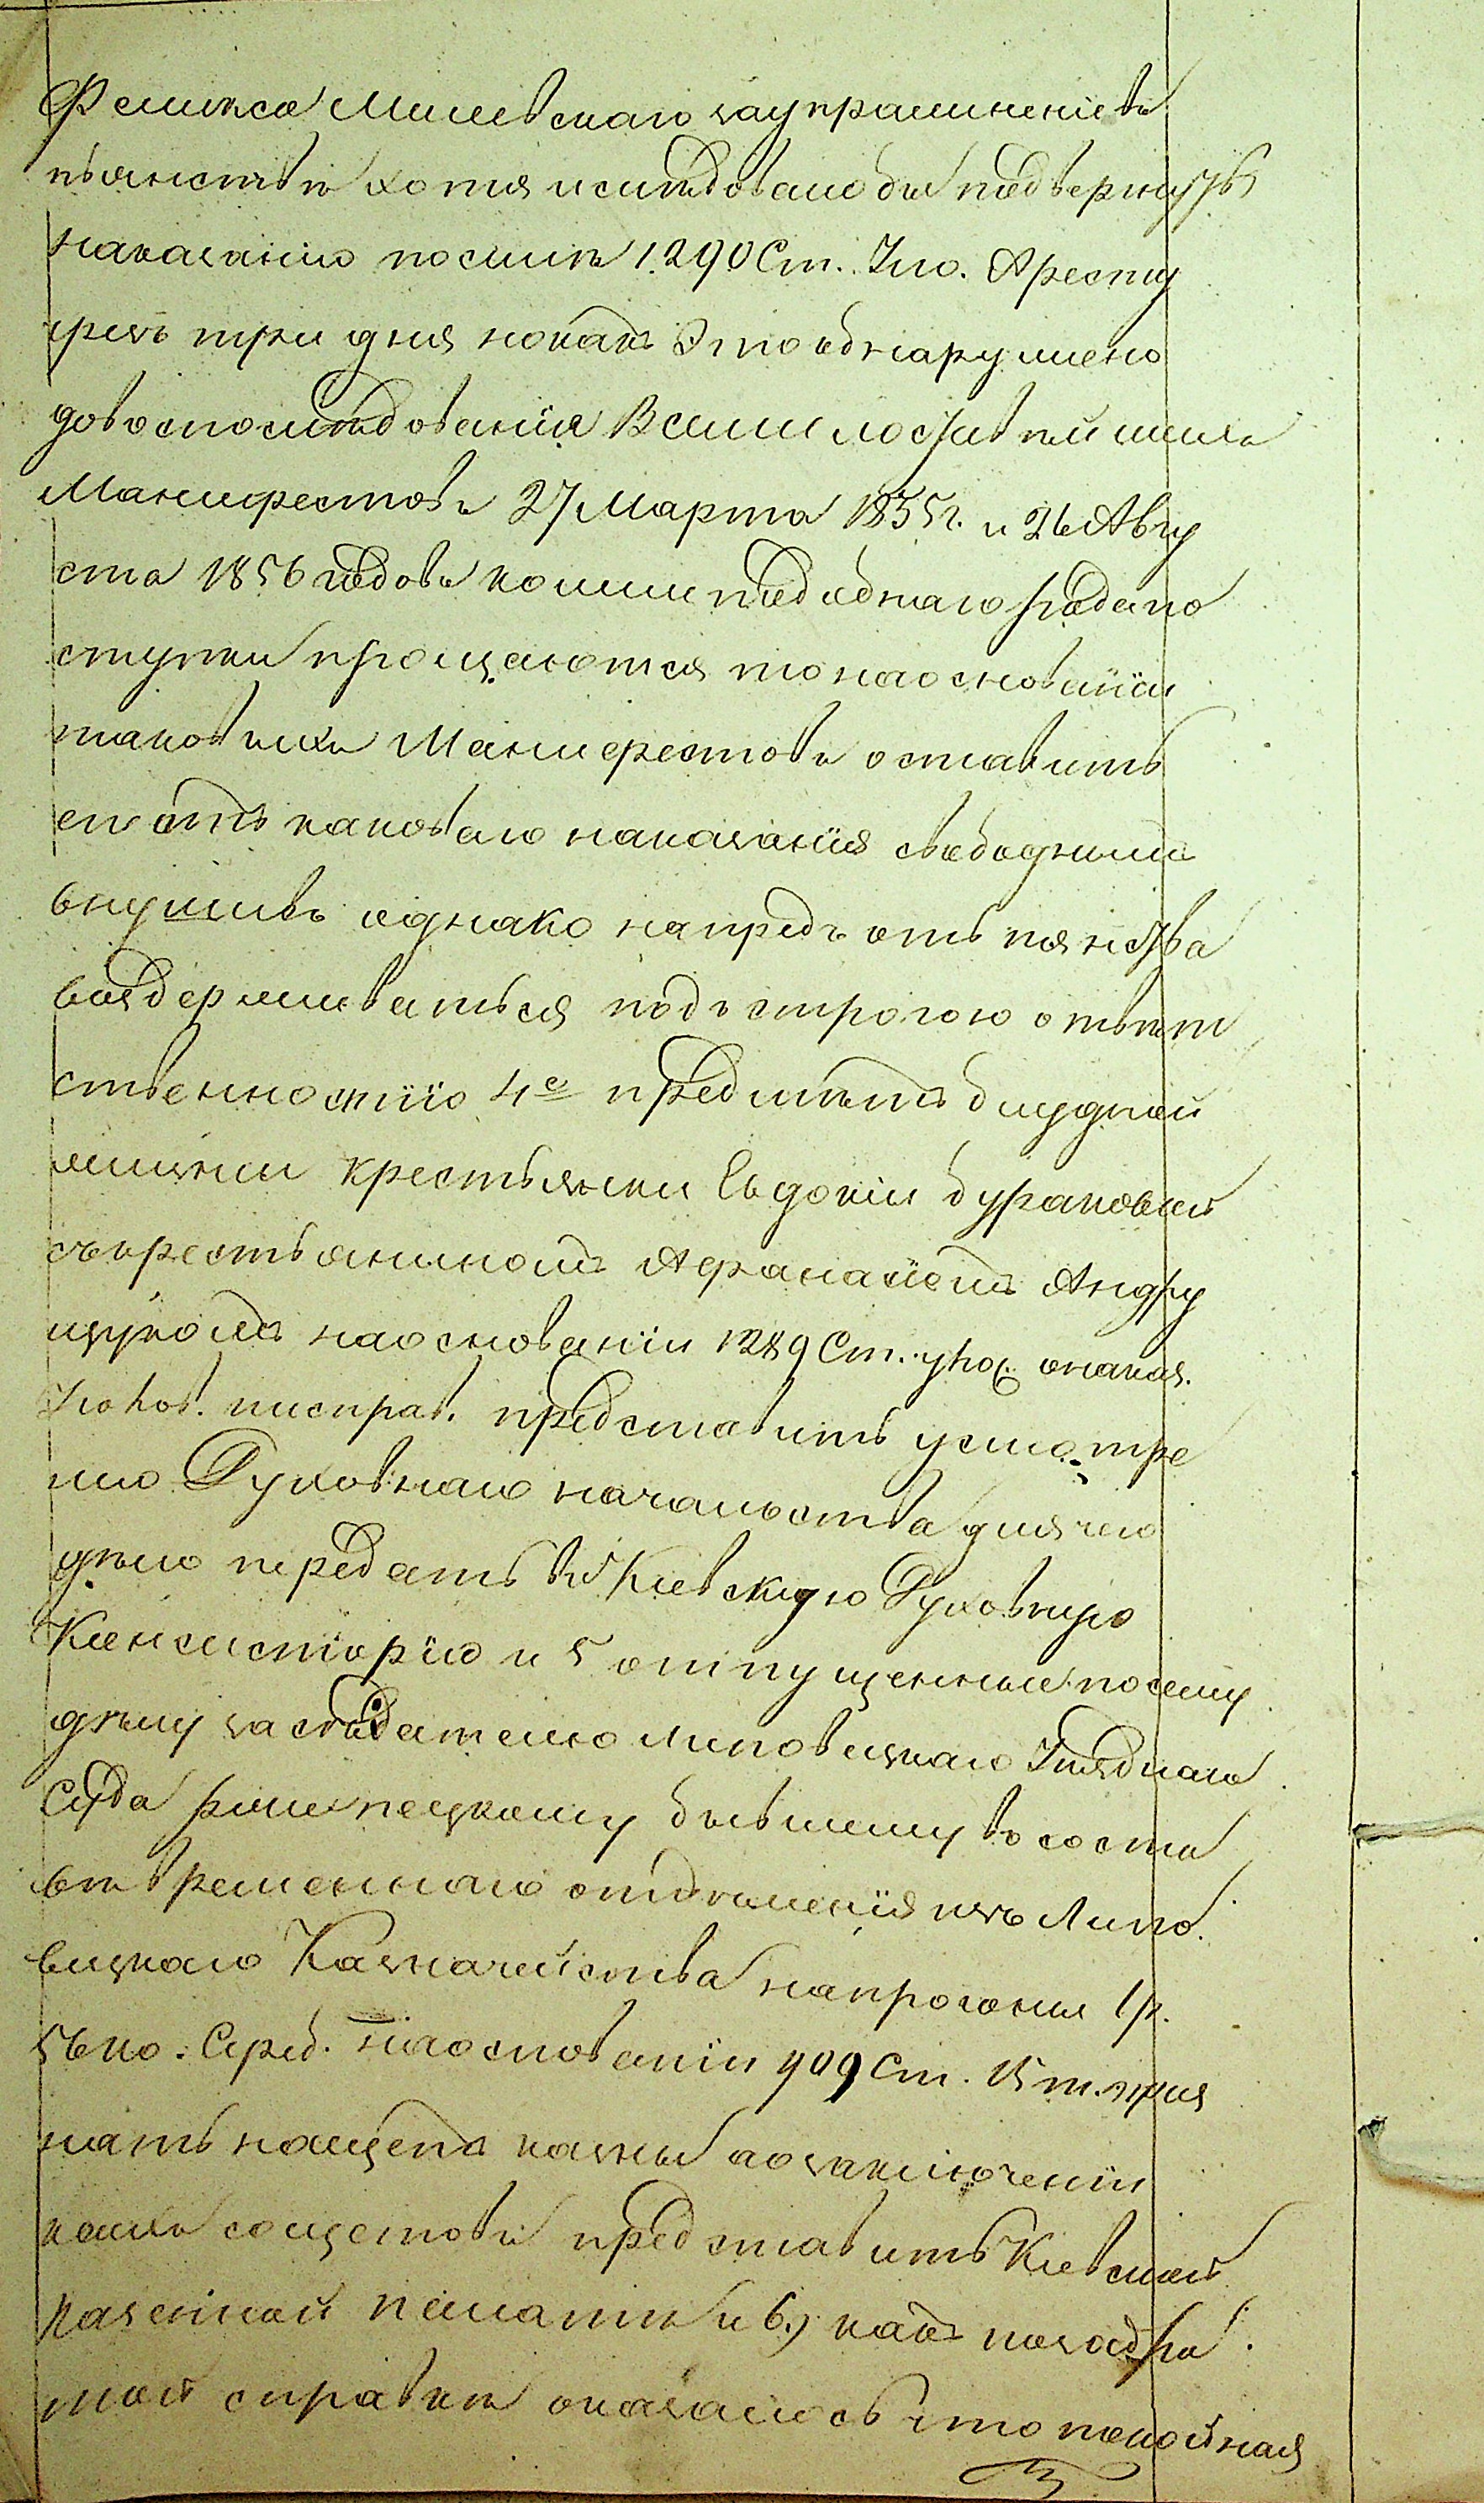 Феликса Милевскаго за упражненіе въ
пьянствѣ хотя и слѣдовало бы подвергнуть
наказанію по силѣ 1290 Ст. Улo. Аресту
чрезъ три дня но какъ это обнаружено
до воспослѣдованія Всемилостивѣйшихъ
Манифестовъ 27 Марта 1855 г. и 26 Авгу
ста 1856 годовъ коими подобнаго рода по
ступки прощаются то на основаніи
таковыхъ Манифестовъ оставить
его отъ таковаго наказанія свободнымъ
внушивъ однако напредъ отъ пянства
воздерживаться подъ строгою отвѣт
ственностію 4е предметъ блудной
жизни крестьянки Евдокіи Бураковой
съ крестьяниномъ Афанасіемъ Андру
щукомъ на основаніи 1289 Ст. улож. о наказ.
уголов. и исправ. представить усмотре
нію Духовнаго начальства для чего
дѣло передать въ Кіевскую Духовную
Консисторію и 5 отпущенныя по сему
дѣлу засѣдателю Липовецкаго Уѣзднаго
Суда бывшему въ соста
вѣ временнаго отдѣленія изъ Липо
вецкаго Казначейства на прогоны 1 р.
56 ко. Сереб. на основаніи 909 Ст. 15 т. при
нять на щетъ казны а о заключеніи
сихъ сощетовъ представить Кіевской
Казенной Палатѣ и 6.) какъ по забра
ной справкѣ оказалось что покойная